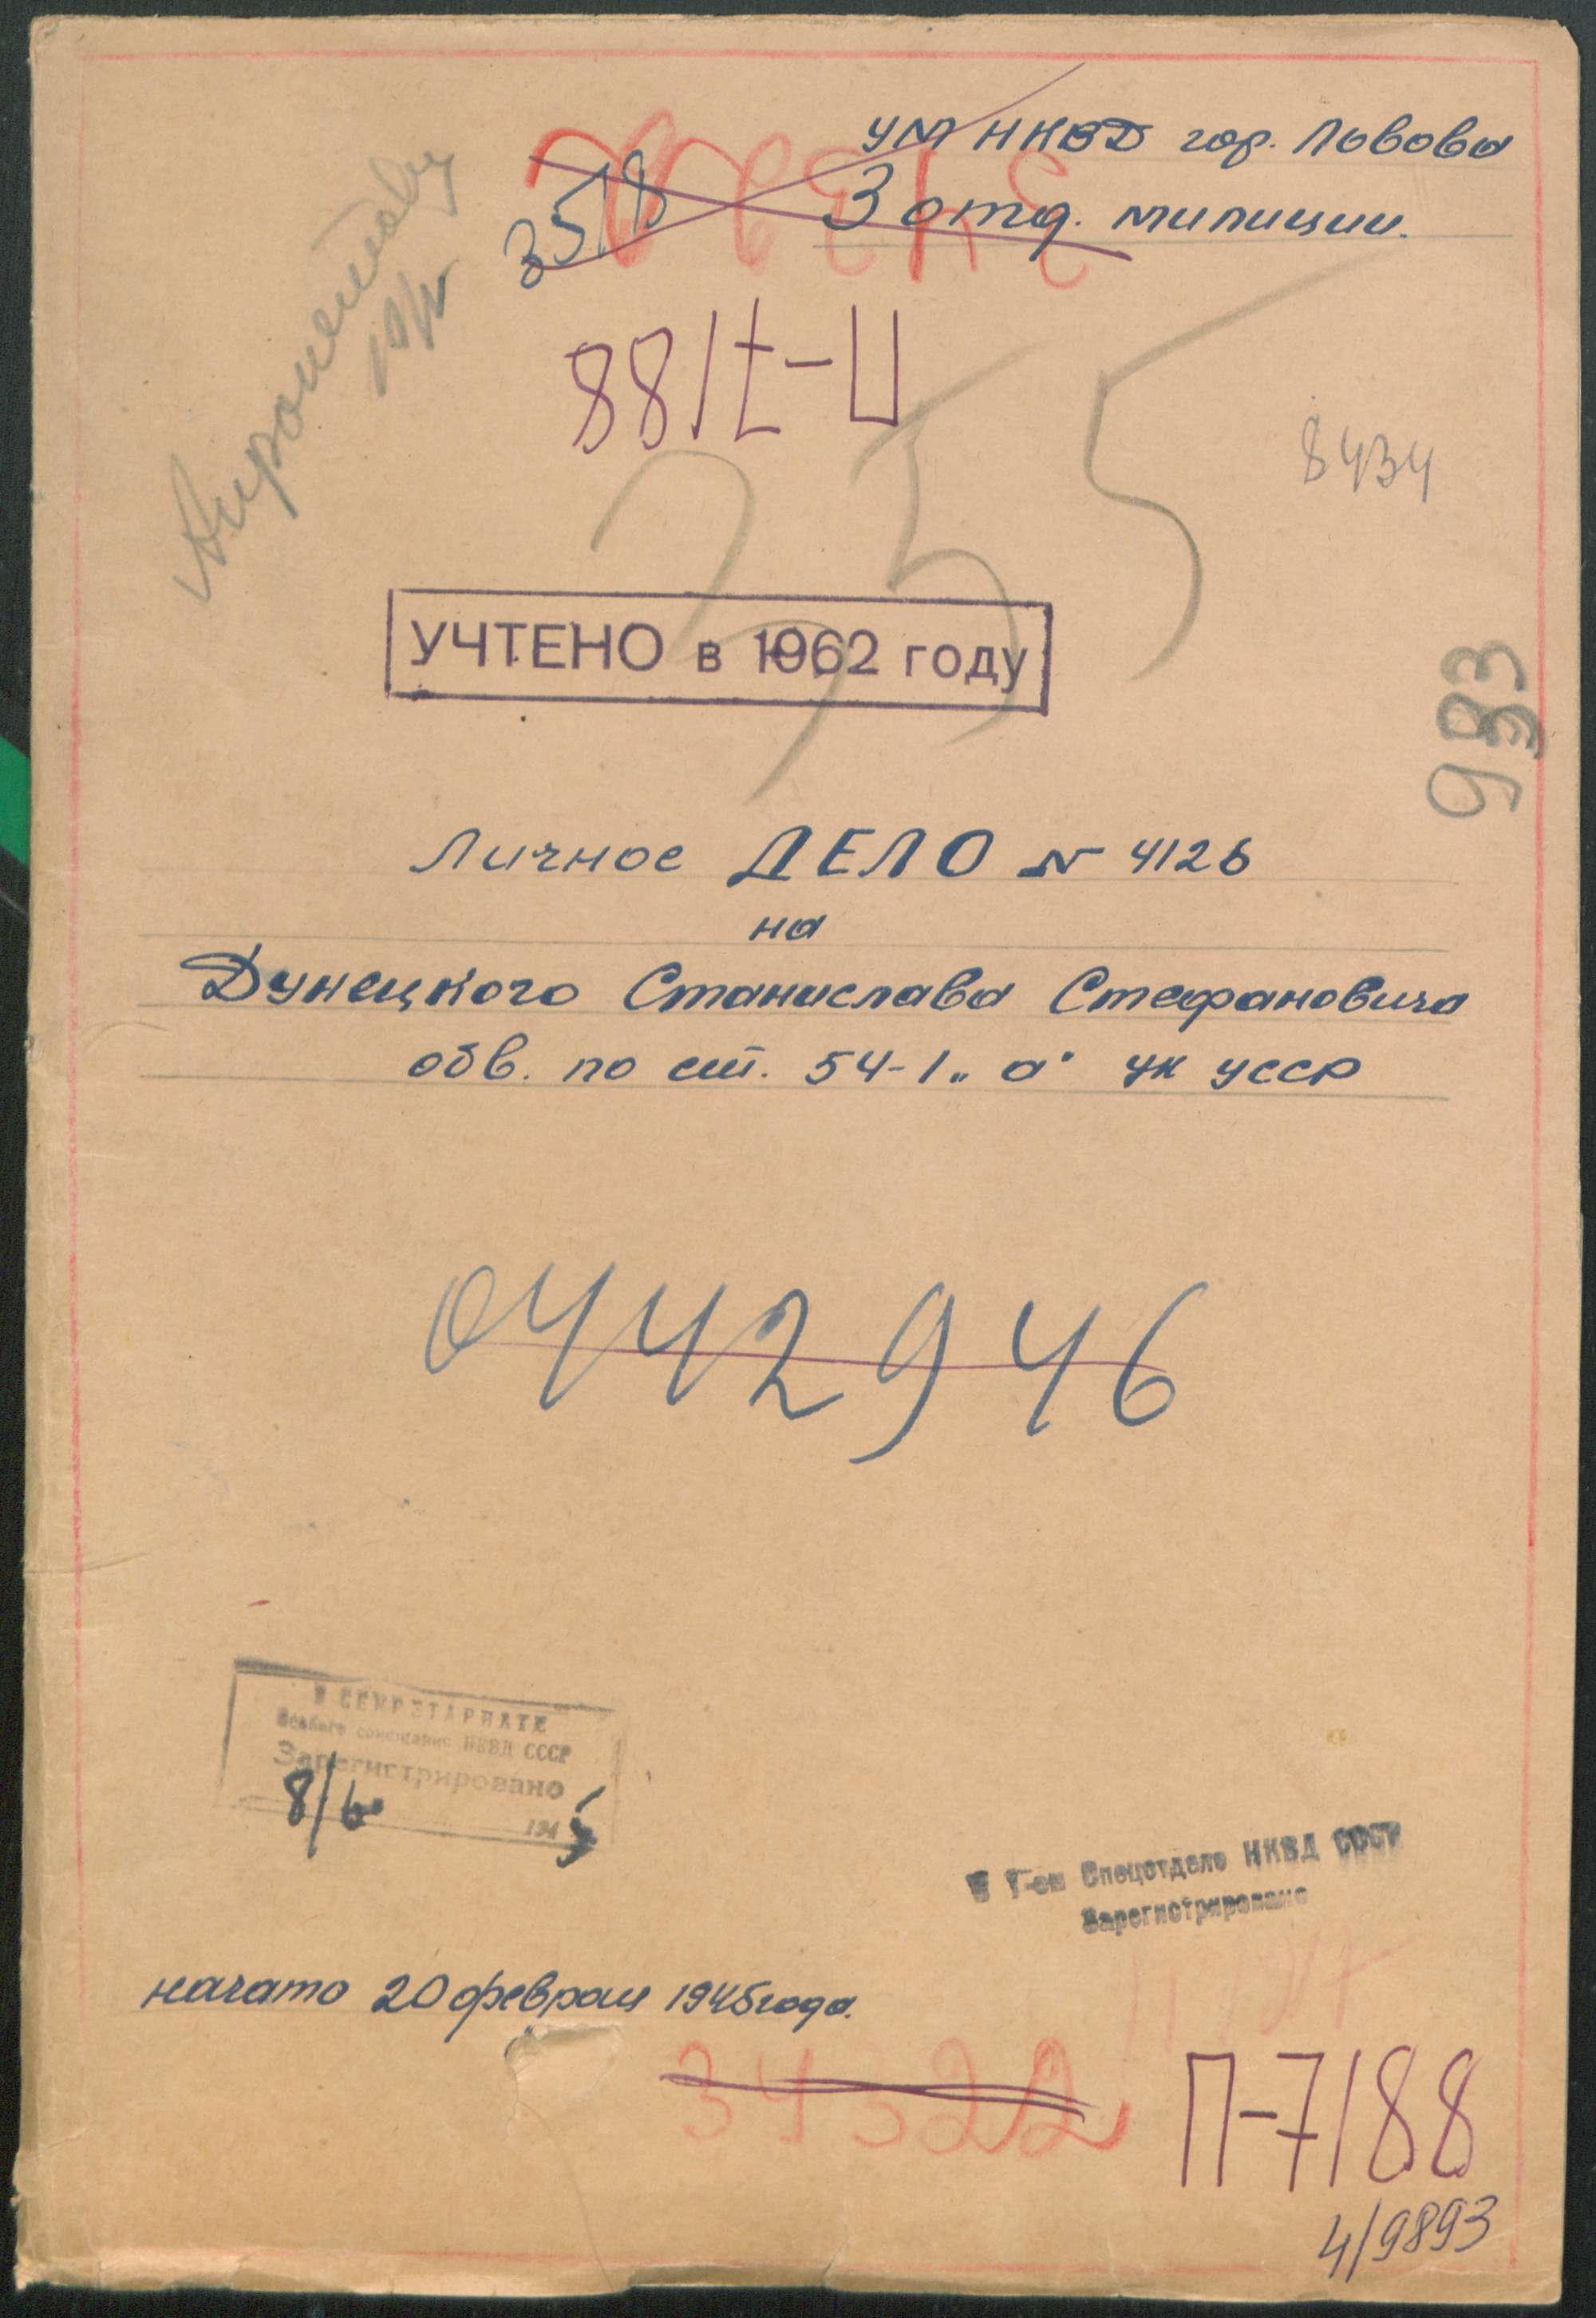 УМ НКВД гор. Львова
3 отд. милиции.
3518
34322
П-7188
8434
355
УЧТЕНО в 1962 году
983
Личное ДЕЛО № 4126
на
Дунецкого Станислава Стефановича
обв. по ст. 54-1 „а" УК УССР
0442946
В СЕКРЕТАРИАТЕ
Особого совещания НКВД СССР
Зарегистрировано
8/6 1945
В 1-ом Спецотделе НКВД СССР
Зарегистрировано
начато 20 февраля 1945 года.
34322
П-7188
4/9893